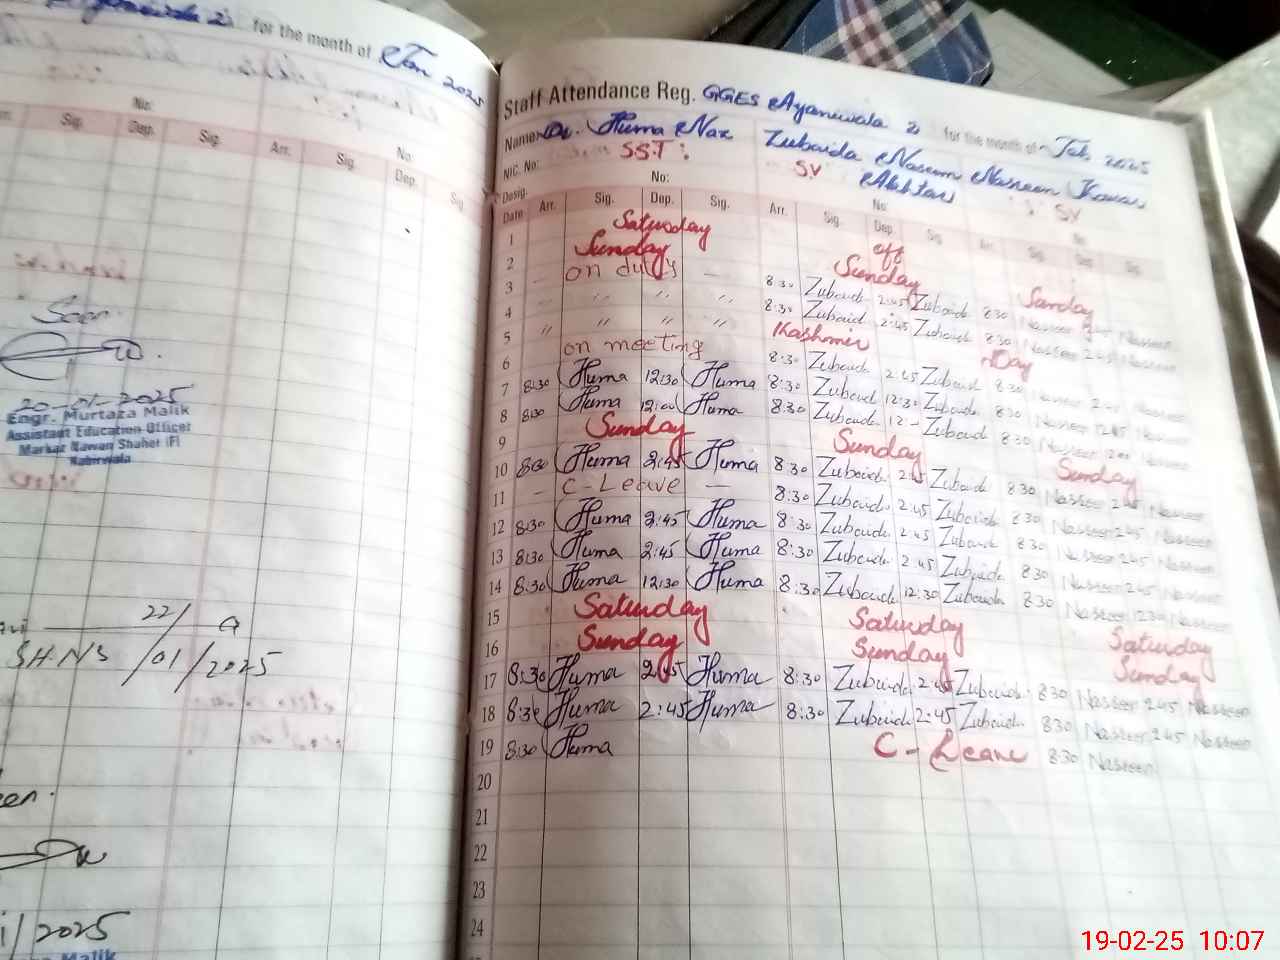 for the month of Jan 2025
No:
Sig. Dep. Sig. Arr. Sig. No: Dep. Sig.
Seen.
20-01-2025
Engr. Murtaza Malik
Assistant Education Officer
Markaz Nawan Shaher (F)
Kabirwala
22/
SH.NS /01/2025
/2025
Malik
Staff Attendance Reg. GGES Ayanwala 2 for the month of Feb 2025
Name Dr. Huma Naz Zubaida Naseem Akhtar Nasreen Kawar
NIC. No: SST: SV SV
Desig. No: No: No:
Date Arr. Sig. Dep. Sig. Arr. Sig. Dep. Sig. Arr. Sig. Sig. Sig.
1 Saturday off
2 Sunday Sunday Sunday
3 – on duty – 8:30 Zubaid 2:45 Zubaid 8 30 Nasreen 2 45 Nasreen
4 – " " " 8:30 Zubaid 2:45 Zubaid 8 30 Nasreen 2 45 Nasreen
5 " " " " Kashmir Day
6 on meeting 8:30 Zubaid 2:45 Zubaid 8 30 Nasreen 2 45 Nasreen
7 8:30 Huma 12:30 Huma 8:30 Zubaid 12:30 Zubaid 8 30 Nasreen
8 8:30 Huma 12:00 Huma 8:30 Zubaid 12:- Zubaid 8 30 Nasreen
9 Sunday Sunday Sunday
10 8:30 Huma 2:45 Huma 8:30 Zubaid 2:45 Zubaid 8 30 Nasreen 2 45 Nasreen
11 – C-Leave – 8:30 Zubaid 2:45 Zubaid 8 30 Nasreen 2 45 Nasreen
12 8:30 Huma 2:45 Huma 8:30 Zubaid 2:45 Zubaid 8 30 Nasreen 2 45 Nasreen
13 8:30 Huma 2:45 Huma 8:30 Zubaid 2:45 Zubaid 8 30 Nasreen 2 45 Nasreen
14 8:30 Huma 12:30 Huma 8:30 Zubaid 12:30 Zubaid 8 30 Nasreen 12 30 Nasreen
15 Saturday Saturday Saturday
16 Sunday Sunday Sunday
17 8:30 Huma 2:45 Huma 8:30 Zubaid 2:45 Zubaid 8 30 Nasreen 2 45 Nasreen
18 8:30 Huma 2:45 Huma 8:30 Zubaid 2:45 Zubaid 8 30 Nasreen 2 45 Nasreen
19 8:30 Huma C-Leave 8 30 Nasreen
20
21
22
23
24
19-02-25 10:07